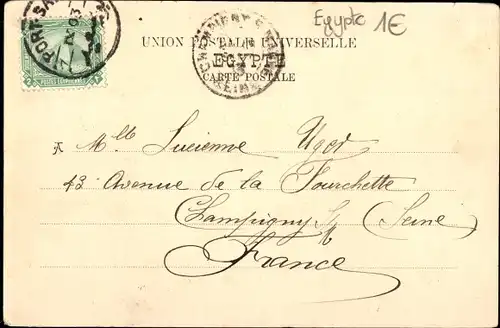 Egypte 1€
PORT-SAID
UNION POSTALE UNIVERSELLE
EGYPTE
CARTE POSTALE
CHAMPIGNY
SEINE
A Mlle Lucienne Ugor
43 Avenue de la Fourchette
Champigny s/M (Seine)
France